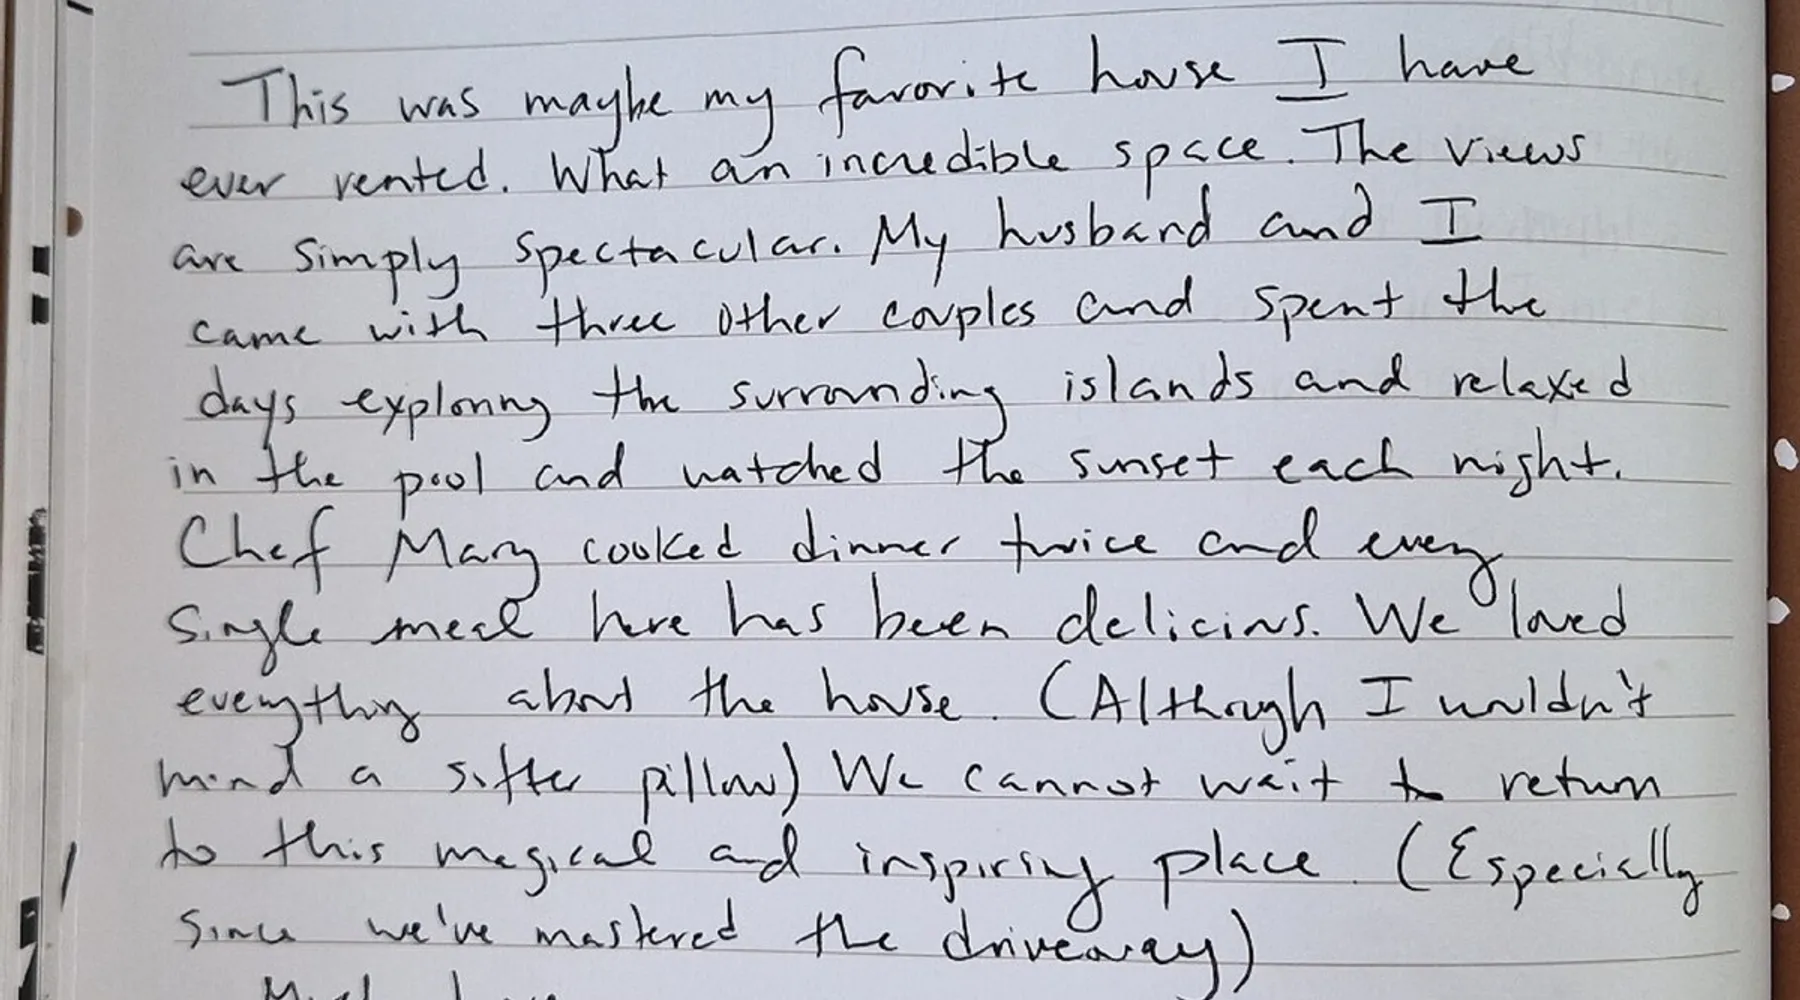 This was maybe my favorite house I have
ever rented. What an incredible space. The views
are simply spectacular. My husband and I
came with three other couples and spent the
days exploring the surrounding islands and relaxed
in the pool and watched the sunset each night.
Chef Mary cooked dinner twice and every
single meal here has been delicious. We loved
everything about the house. (Although I wouldn't
mind a softer pillow) We cannot wait to return
to this magical and inspiring place. (Especially
since we've mastered the driveway)